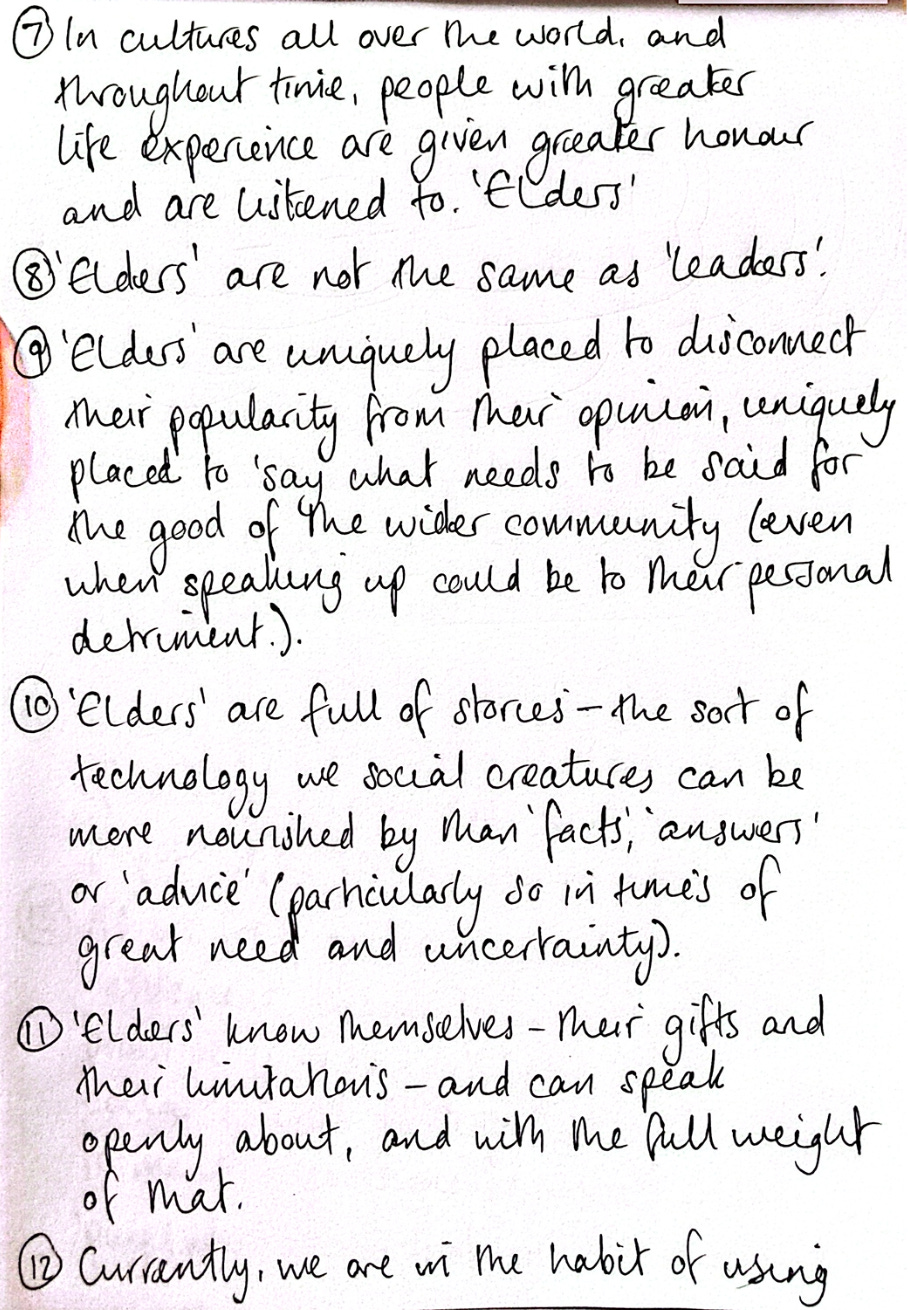 ⑦ In cultures all over the world, and
throughout time, people with greater
life experience are given greater honour
and are listened to. 'Elders'
⑧ 'Elders' are not the same as 'leaders'.
⑨ 'Elders' are uniquely placed to disconnect
their popularity from their opinion, uniquely
placed to 'say what needs to be said for
the good of the wider community (even
when speaking up could be to their personal
detriment.).
⑩ 'Elders' are full of stories – the sort of
technology we social creatures can be
more nourished by than 'facts', 'answers'
or 'advice' (particularly so in times of
great need and uncertainty).
⑪ 'Elders' know themselves – their gifts and
their limitations – and can speak
openly about, and with the full weight
of that.
⑫ Currently, we are in the habit of using